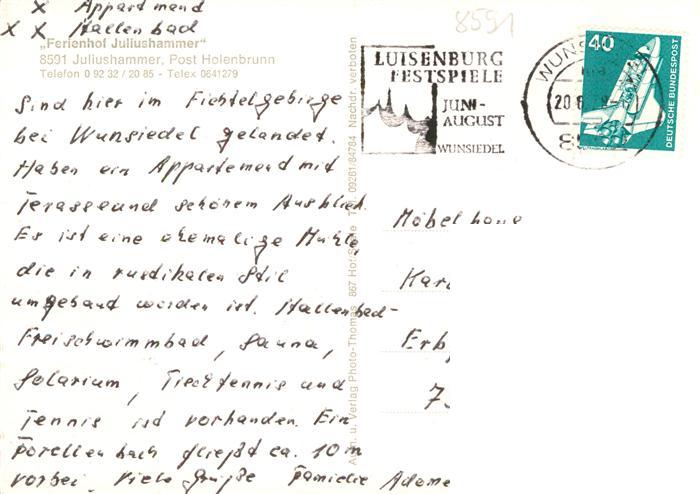 x Appartmend
x x Hallenbad
„Ferienhof Juliushammer“
8591 Juliushammer, Post Holenbrunn
Telefon 0 92 32 / 20 85 - Telex 0641279
Sind hier im Fichtelgebirge
bei Wunsiedel gelandet.
Haben ein Appartemend mit
Terasse und schönem Ausblick.
Es ist eine ehemalige Mühle,
die in rustikalen Stil
umgebaut worden ist. Hallenbad-
Freischwimmbad, Sauna,
Solarium, Tischtennis und
Tennis ist vorhanden. Ein
Forellenbach fließt ca. 10 m
vorbei. Viele Grüße Familie Adame
Aufn. u. Verlag Photo-Thomas 867 Hof/Saale Tel. 09281/84784 Nachdr. verboten
8591
LUISENBURG
FESTSPIELE
JUNI-
AUGUST
WUNSIEDEL
WUNS
20.6
40
DEUTSCHE BUNDESPOST
Möbel
Kar
Erb
7